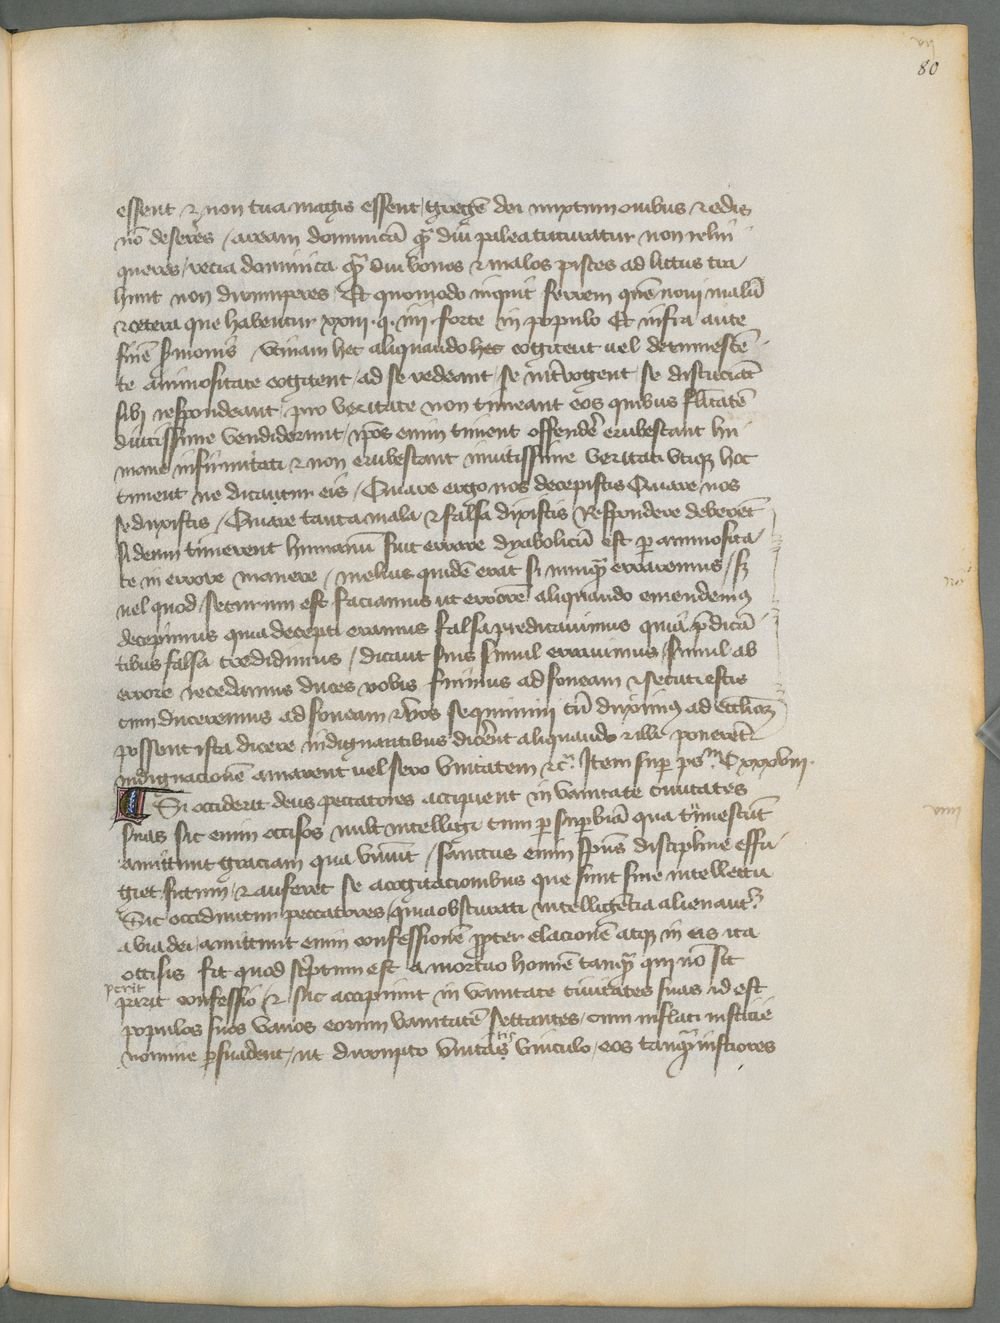 80
essent & non tua magis essent / gregē dei mixtum ouibus & edis
nō deseres / aream dominicā qͣ diu palea trituratur non relin
queres / recia dominica qͣ diu bonos & malos pisces ad littus tra
hunt non dirumperes / Et quomodo inquit ferrem quē noui malū
& cetera que habentur xxiii · q · iiii · forte in populo Et infra ante
finē sermonis / vtinam hec aliquando hec cogitent uel
te animositate cogitent / ad se redeant / se int'rogent / se discuciāt
sibi respondeant / pro veritate non timeant eos quibus flsitatē
diutissime vendiderunt / ip̄os enim timent offendē erubescant hu
mane infirmitati & non erubescant inuitissime veritati vtiqz hoc
timent ne dicatur eis / Quare ergo nos decepistis Quare nos
seduxistis / Quare tanta mala & falsa dixistis Respondere deberēt
si deum timerent humanū fuit errare dyabolicū est p animosita
te in errore manere / melius quidē erat si nunqͣ erraremus / sz
uel quod secundum est faciamus ut errorē aliquando emendemꝰ
decepimus quia decepti eramus falsa predicauimus quia p̄dicā
tibus falsa credidimus / dicant suis simul errauimus / simul ab
errore recedamus duces vobis fuimus ad foueam & secuti estis
cum duceremus ad foueam & vos sequimini cū duximꝰ ad eccliaꝫ
possent ista dicere indignantibus dicēnt aliquando & ille ponerēt
indignacionē amarent uel sero vnitatem &c̄ · Item sup psͫ Cxxxviii ·
Si occiderit deus peccatores accipient in vanitate ciuitates
suas sic enim occisos vult intelligi cum p supbiā qua tumescūt
amittunt graciam qua viuūt / sanctus enim spūs discipline effu
giet fictum / & auferet se a cogitacionibus que sunt sine intellectu
Sic occiduntur peccatores / quia obscurati intelligētia alienantᷣ
a via dei / amittunt enim confessionē ꝓpter elacionē atqz in eis ita
occisis fit quod scͥptum est a mortuo homīe tanqͣ qui nō sit
perit
perit confessio / & sic accipiunt in vanitate ciuitates suas id est
populos suos vanos eorum vanitatē sectantes / cum inflati iusticie
nomine psuadent / ut dirempto vnitatis vinculo / eos tanqͣ iusciores